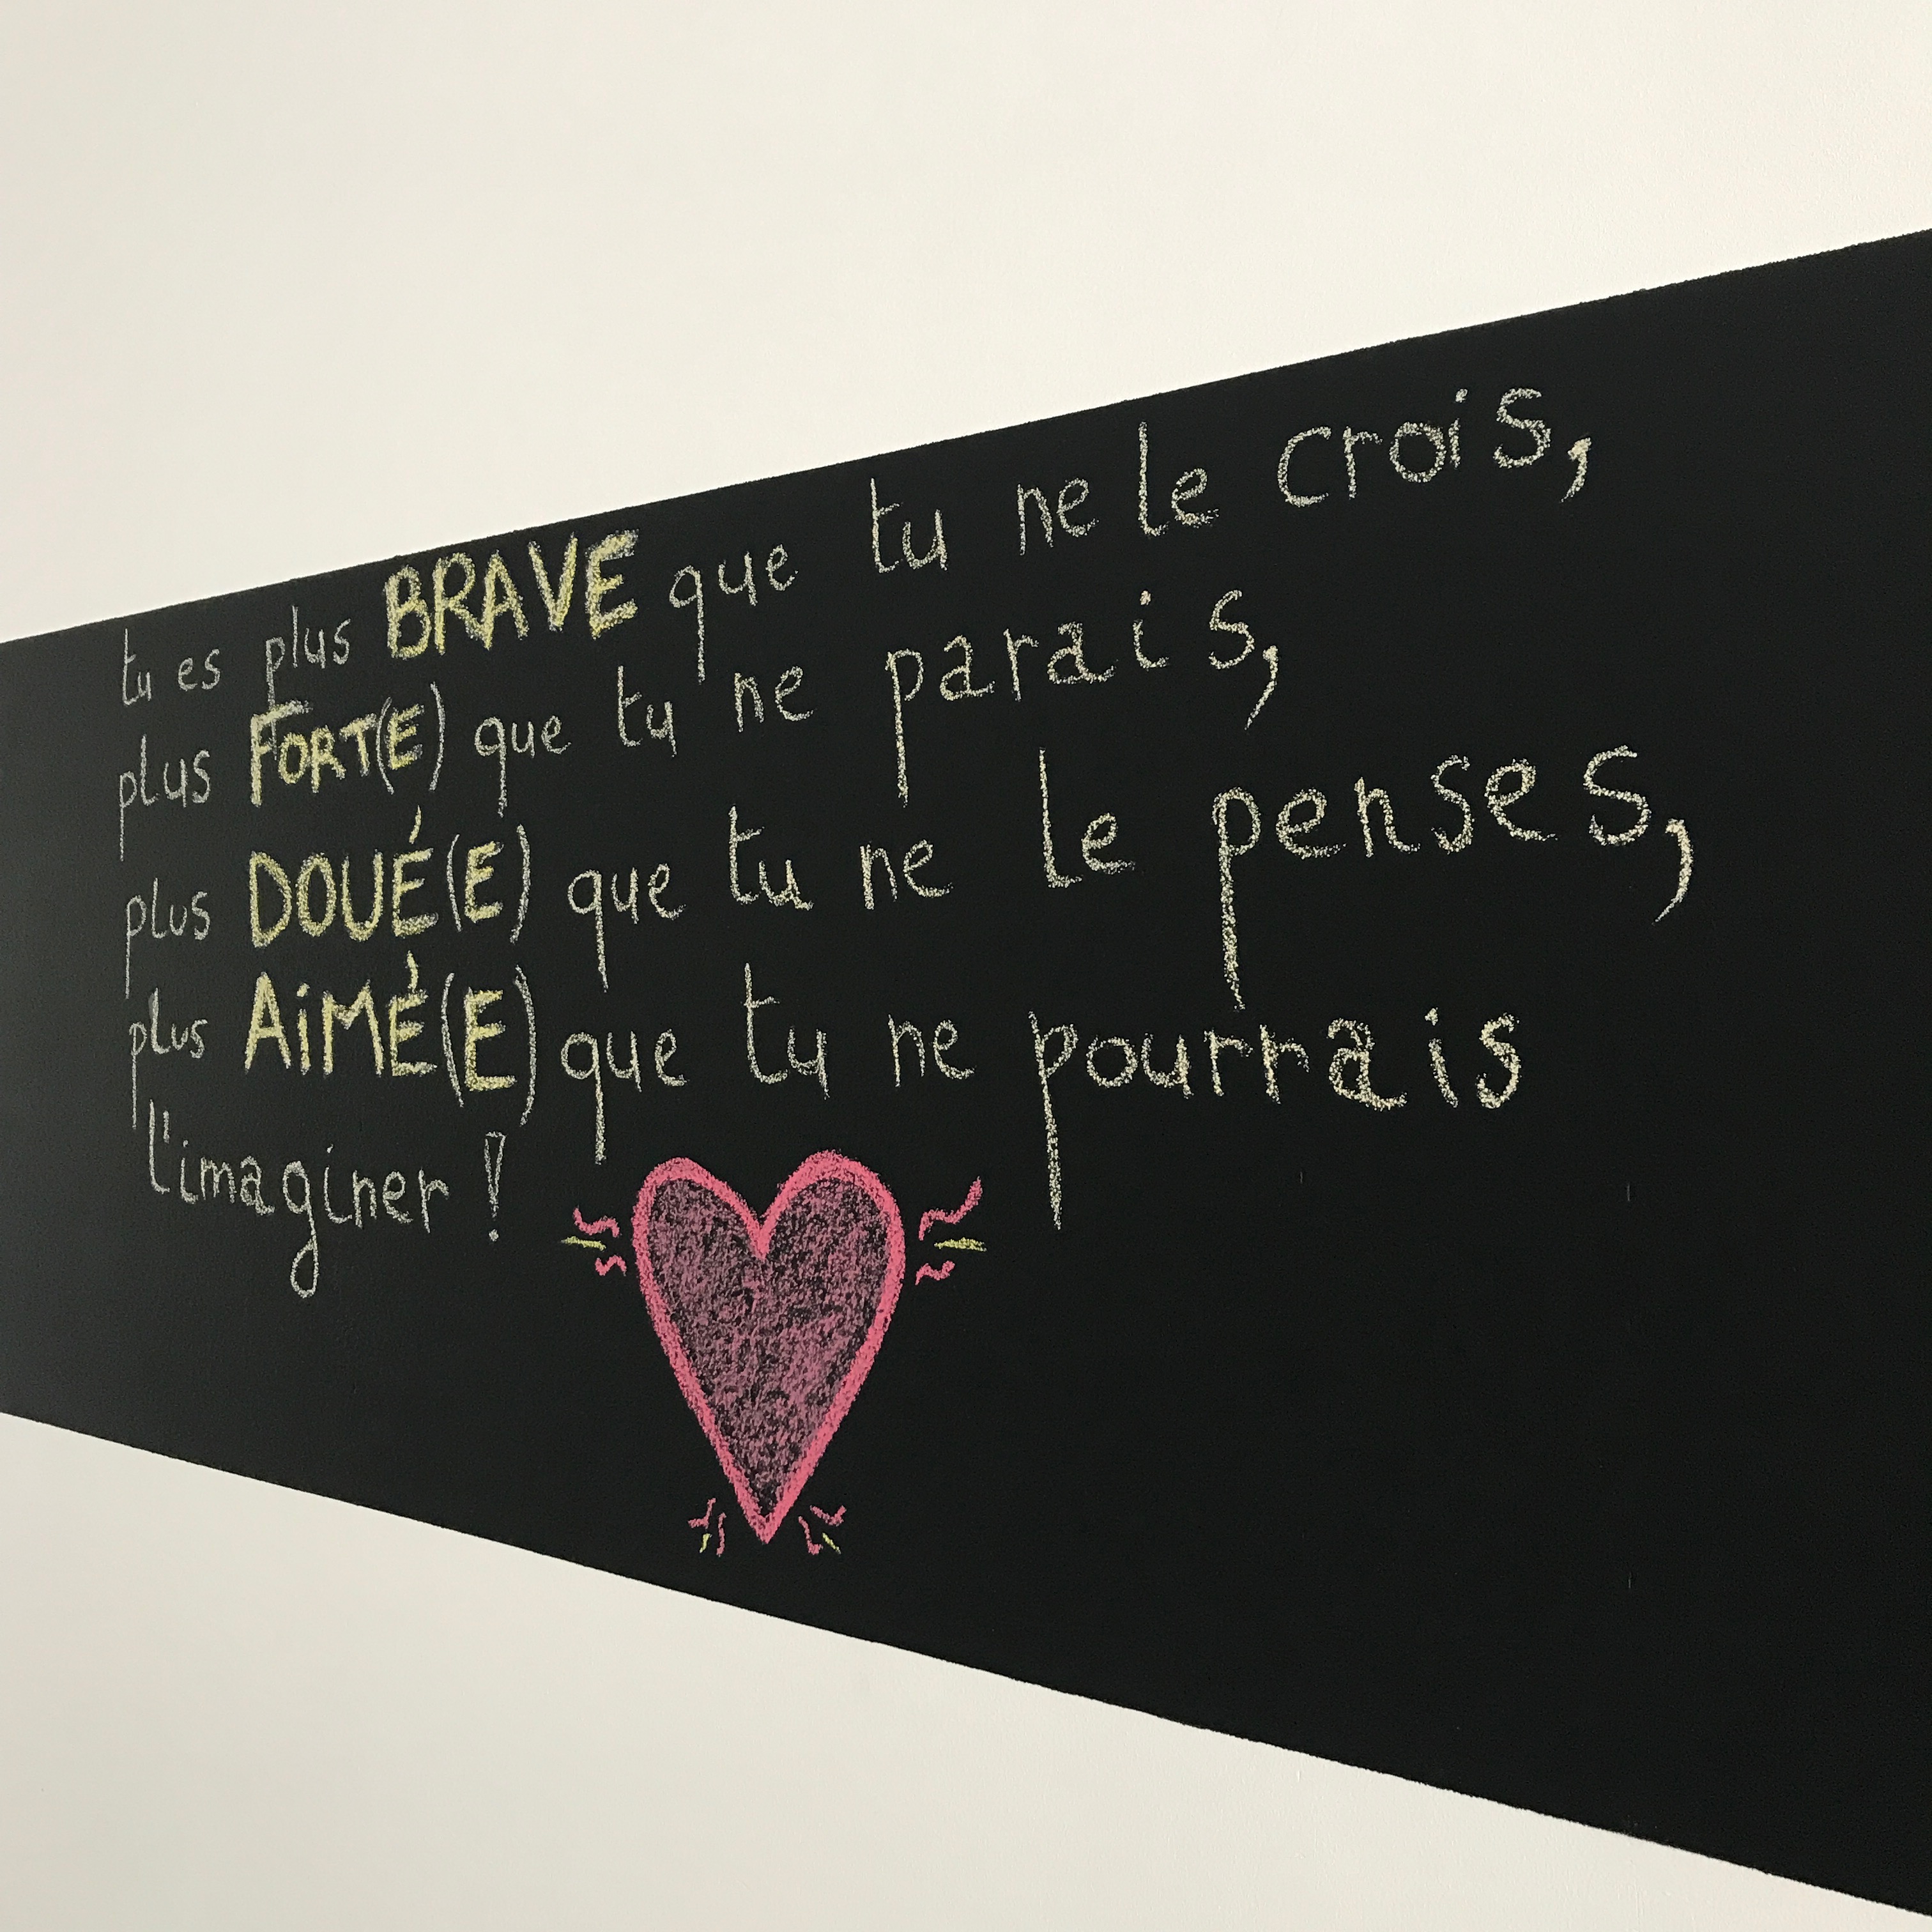 tu es plus BRAVE que tu ne le crois,
plus FORT(E) que tu ne parais,
plus DOUÉ(E) que tu ne le penses,
plus AiMÉ(E) que tu ne pourrais
l'imaginer !